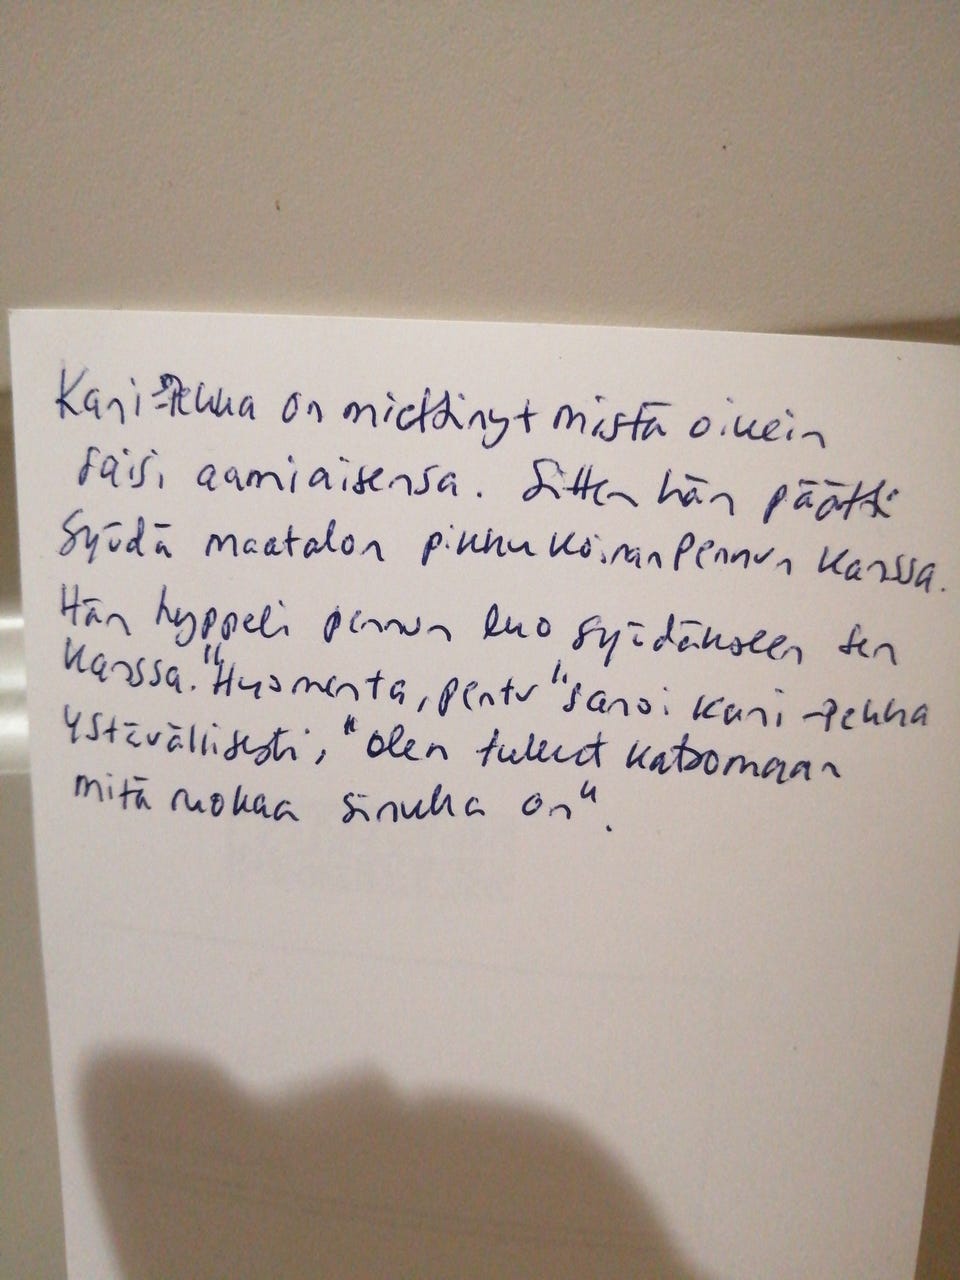 Kani-Pekka on miettinyt mistä oikein
saisi aamiaisensa. Sitten hän päätti
syödä maatalon pikku koiranpennun kanssa.
Hän hyppeli pennun luo syödäkseen sen
kanssa. "Huomenta, pentu" sanoi Kani-Pekka
ystävällisesti, "olen tullut katsomaan
mitä ruokaa sinulla on".